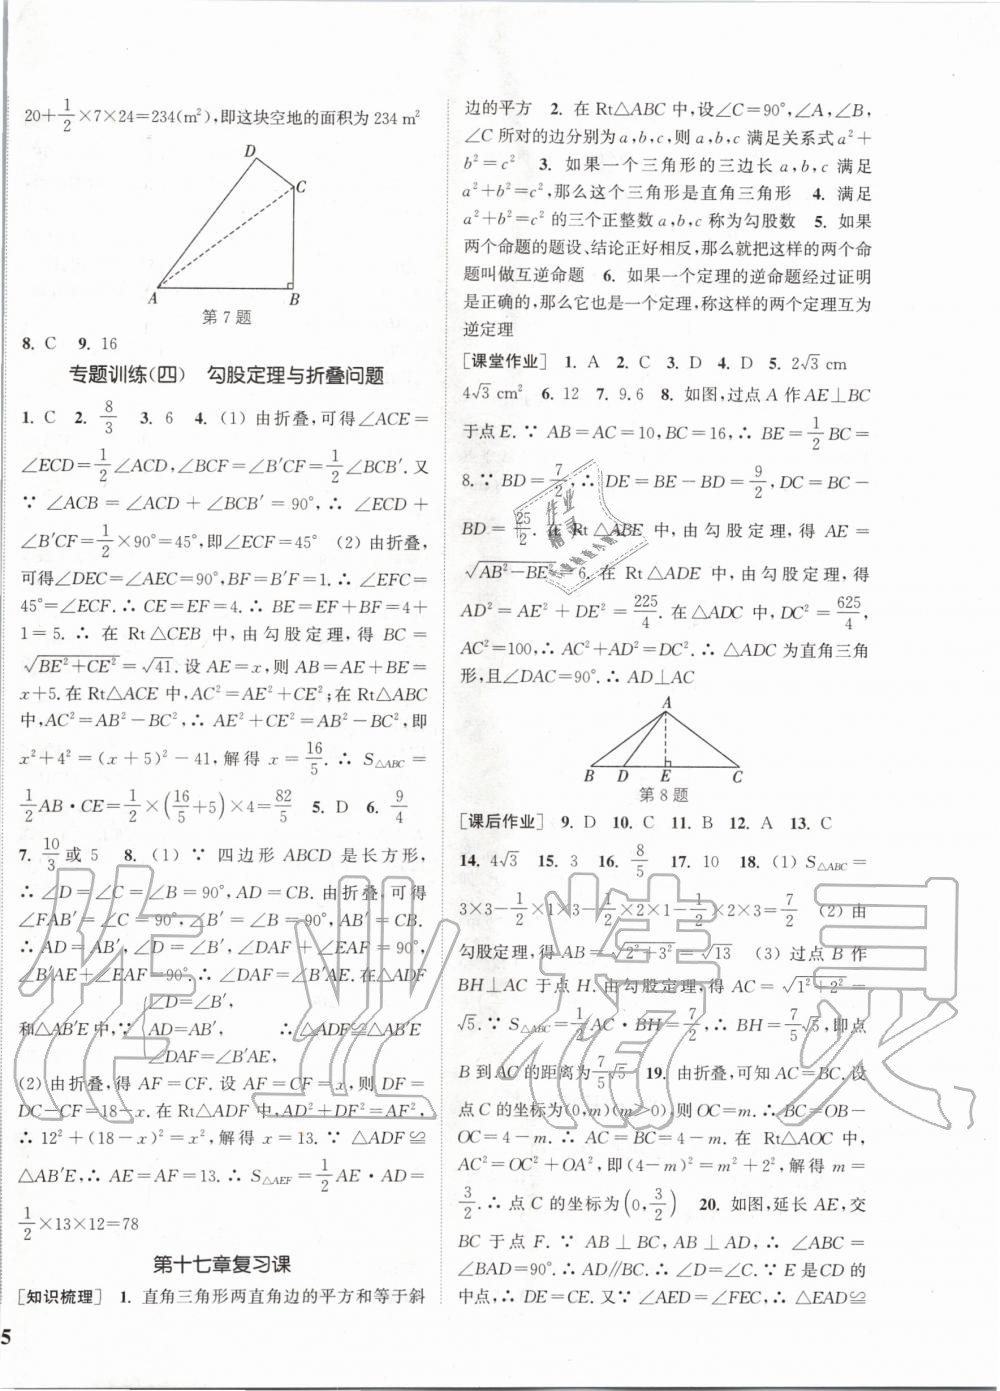 20+1/2×7×24=234(m²),即这块空地的面积为 234 m²
D
C
A
B
第 7 题
8. C 9. 16
专题训练(四) 勾股定理与折叠问题
1. C 2. 8/3 3. 6 4. (1) 由折叠,可得∠ACE=
∠ECD=1/2∠ACD,∠BCF=∠B′CF=1/2∠BCB′. 又
∵ ∠ACB=∠ACD+∠BCB′=90°,∴ ∠ECD+
∠B′CF=1/2×90°=45°,即∠ECF=45° (2) 由折叠,
可得∠DEC=∠AEC=90°,BF=B′F=1. ∴ ∠EFC=
45°=∠ECF. ∴ CE=EF=4. ∴ BE=EF+BF=4+
1=5. ∴ 在 Rt△CEB 中,由勾股定理,得 BC=
√(BE²+CE²)=√41. 设 AE=x,则 AB=AE+BE=
x+5. 在 Rt△ACE 中,AC²=AE²+CE²;在 Rt△ABC
中,AC²=AB²-BC²,∴ AE²+CE²=AB²-BC²,即
x²+4²=(x+5)²-41,解得 x=16/5. ∴ S△ABC=
1/2AB·CE=1/2×(16/5+5)×4=82/5 5. D 6. 9/4
7. 10/3或 5 8. (1) ∵ 四边形 ABCD 是长方形,
∴ ∠D=∠C=∠B=90°,AD=CB. 由折叠,可得
∠FAB′=∠C=90°,∠B′=∠B=90°,AB′=CB.
∴ AD=AB′,∠D=∠B′,∠DAF+∠EAF=90°,
∠B′AE+∠EAF=90°. ∴ ∠DAF=∠B′AE. 在△ADF
∠D=∠B′,
和△AB′E 中,∵ AD=AB′, ∴ △ADF≌△AB′E
∠DAF=∠B′AE,
(2) 由折叠,得 AF=CF. 设 AF=CF=x,则 DF=
DC-CF=18-x. 在 Rt△ADF 中,AD²+DF²=AF²,
∴ 12²+(18-x)²=x²,解得 x=13. ∵ △ADF≌
△AB′E,∴ AE=AF=13. ∴ S△AEF=1/2AE·AD=
1/2×13×12=78
第十七章复习课
[知识梳理] 1. 直角三角形两直角边的平方和等于斜
5
边的平方 2. 在 Rt△ABC 中,设∠C=90°,∠A,∠B,
∠C 所对的边分别为 a,b,c,则 a,b,c 满足关系式 a²+
b²=c² 3. 如果一个三角形的三边长 a,b,c 满足
a²+b²=c²,那么这个三角形是直角三角形 4. 满足
a²+b²=c² 的三个正整数 a,b,c 称为勾股数 5. 如果
两个命题的题设、结论正好相反,那么就把这样的两个命
题叫做互逆命题 6. 如果一个定理的逆命题经过证明
是正确的,那么它也是一个定理,称这样的两个定理互为
逆定理
[课堂作业] 1. A 2. C 3. D 4. D 5. 2√3 cm
4√3 cm² 6. 12 7. 9.6 8. 如图,过点 A 作 AE⊥BC
于点 E. ∵ AB=AC=10,BC=16,∴ BE=1/2BC=
8. ∵ BD=7/2,∴ DE=BE-BD=9/2,DC=BC-
BD=25/2. 在 Rt△ABE 中,由勾股定理,得 AE=
√(AB²-BE²)=6. 在 Rt△ADE 中,由勾股定理,得
AD²=AE²+DE²=225/4. 在△ADC 中,DC²=625/4,
AC²=100,∴ AC²+AD²=DC². ∴ △ADC 为直角三角
形,且∠DAC=90°. ∴ AD⊥AC
A
B D E C
第 8 题
[课后作业] 9. D 10. C 11. B 12. A 13. C
14. 4√3 15. 3 16. 8/5 17. 10 18. (1) S△ABC=
3×3-1/2×1×3-1/2×2×1-1/2×2×3=7/2 (2) 由
勾股定理,得 AB=√(2²+3²)=√13 (3) 过点 B 作
BH⊥AC 于点 H. 由勾股定理,得 AC=√(1²+2²)=
√5. ∵ S△ABC=1/2AC·BH=7/2,∴ BH=7/5√5,即点
B 到 AC 的距离为7/5√5 19. 由折叠,可知 AC=BC. 设
点 C 的坐标为(0,m)(m>0),则 OC=m. ∴ BC=OB-
OC=4-m. ∴ AC=BC=4-m. 在 Rt△AOC 中,
AC²=OC²+OA²,即(4-m)²=m²+2²,解得 m=
3/2. ∴ 点 C 的坐标为(0,3/2) 20. 如图,延长 AE,交
BC 于点 F. ∵ AB⊥BC,AB⊥AD,∴ ∠ABC=
∠BAD=90°. ∴ AD∥BC. ∴ ∠D=∠C. ∵ E 是 CD 的
中点,∴ DE=CE. 又∵ ∠AED=∠FEC,∴ △EAD≌
作业精灵